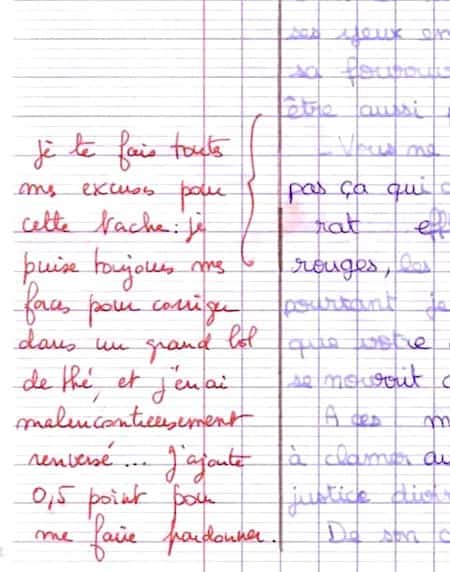 je te fais toutes
mes excuses pour
cette tache : je
puise toujours mes
forces pour corriger
dans un grand bol
de thé, et j'en ai
malencontreusement
renversé... J'ajoute
0,5 point pour
me faire pardonner.
ses yeux en
sa
être aussi
– Vous ne
pas ça qui
rat eff
rouges, les
pourtant je
que votre
se nourrit
A ces m
à clamer au
justice
De son